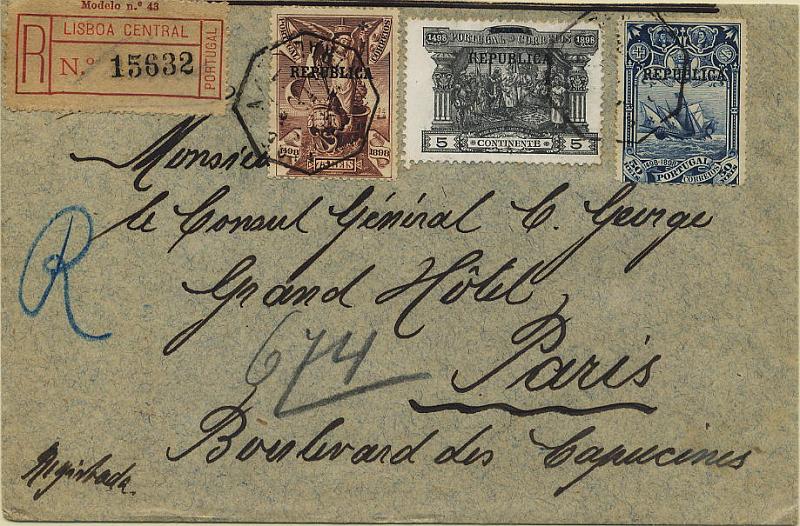 Modelo n.º 43
R
LISBOA CENTRAL
N.º 15632
PORTUGAL
PORTUGAL CORREIOS
REPUBLICA
1498 1898
75 REIS
1498 PORTUGAL CORREIOS 1898
REPUBLICA
5 CONTINENTE 5
REPUBLICA
1498-1898
50 PORTUGAL 50
REIS CORREIOS REIS
Monsieur
le Consul Général C. George
Grand Hôtel
R
674
Paris
Boulevard des Capucines
Registrada.